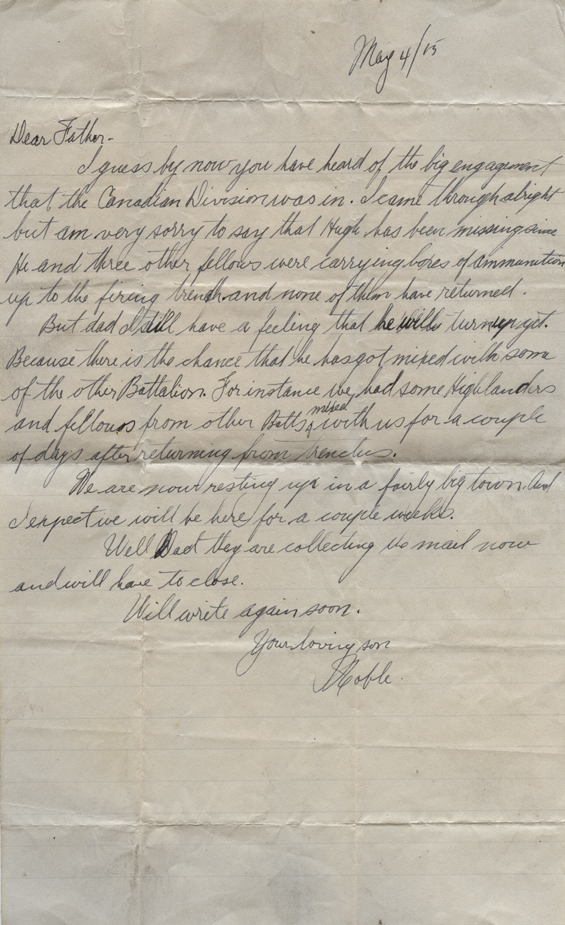 May 4/15
Dear Father-
I guess by now you have heard of the big engagement
that the Canadian Division was in. I came through alright
but am very sorry to say that Hugh has been missing since
He and three other fellows were carrying boxes of ammunition
up to the firing trench and none of them have returned.
But dad I still have a feeling that he will turn up yet.
Because there is the chance that he has got mixed with some
of the other Battalion. For instance we had some Highlanders
mixed
and fellows from other Batts, with us for a couple
of days after returning from trenches.
We are now resting up in a fairly big town. And
I expect we will be here for a couple weeks.
Well Dad they are collecting the mail now
and will have to close.
Will write again soon.
Your loving son
Noble.